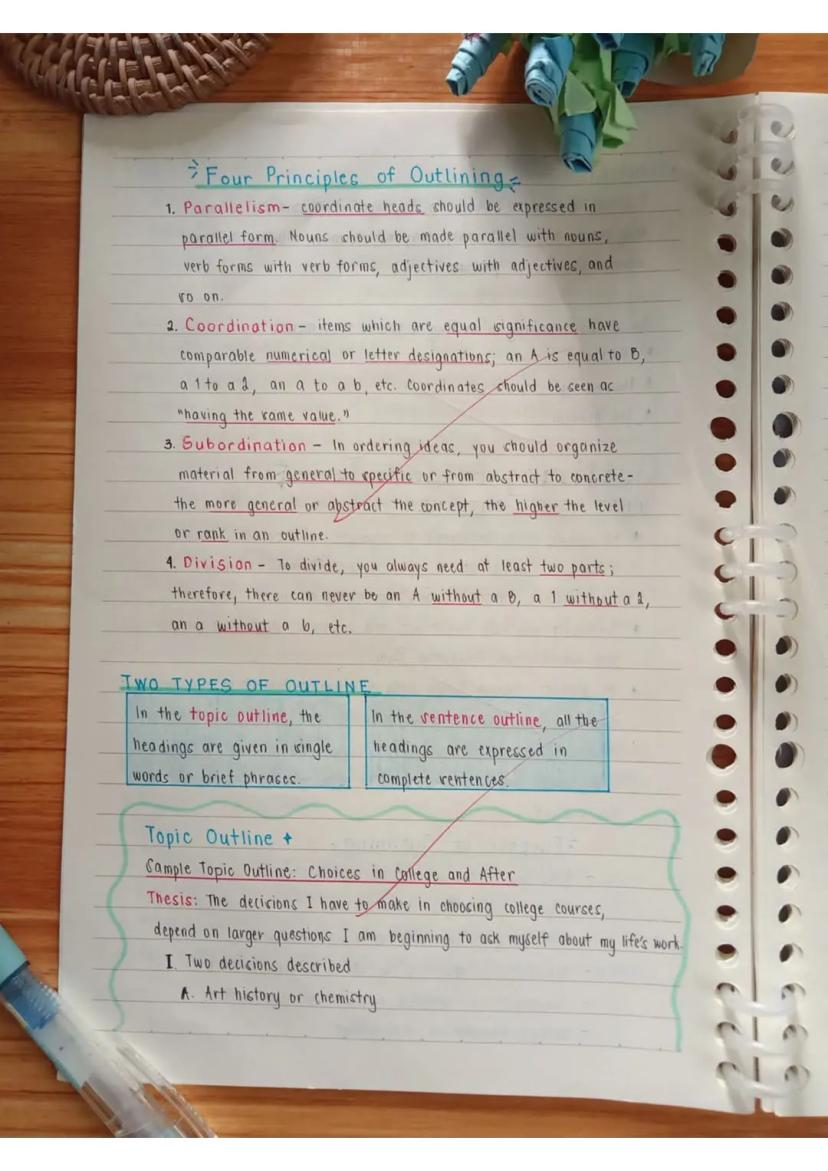 Four Principles of Outlining
1. Parallelism- coordinate heads should be expressed in
parallel form. Nouns should be made parallel with nouns,
verb forms with verb forms, adjectives with adjectives, and
so on.
2. Coordination - items which are equal significance have
comparable numerical or letter designations; an A is equal to B,
a 1 to a 2, an a to a b, etc. Coordinates should be seen as
"having the same value."
3. Subordination - In ordering ideas, you should organize
material from general to specific or from abstract to concrete-
the more general or abstract the concept, the higher the level
or rank in an outline.
4. Division - To divide, you always need at least two parts;
therefore, there can never be an A without a B, a 1 without a 2,
an a without a b, etc.
TWO TYPES OF OUTLINE
In the topic outline, the
headings are given in single
words or brief phrases.
In the sentence outline, all the
headings are expressed in
complete sentences.
Topic Outline
Sample Topic Outline: Choices in College and After
Thesis: The decisions I have to make in choosing college courses,
depend on larger questions I am beginning to ask myself about my life's work.
I. Two decisions described
A. Art history or chemistry